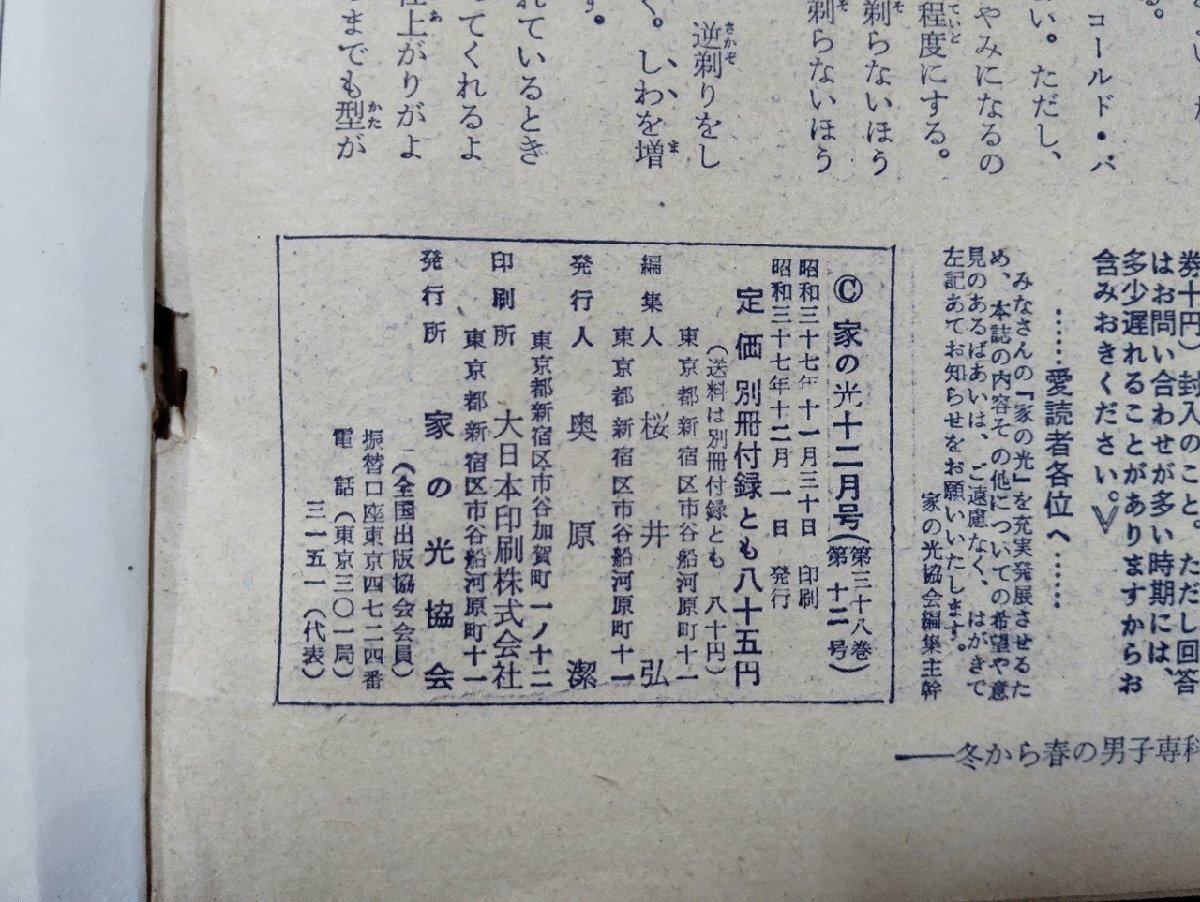 る。
コールド・バ
い。ただし、
やみになるの
程度にする。
剃らないほう
剃らないほう
逆剃りをし
く。しわを増
す。
れているとき
ってくれるよ
仕上がりがよ
までも型が
券十円）封入のこと。ただし回答
はお問い合わせが多い時期には、
多少遅れることがありますからお
含みおきください。≫
……愛読者各位へ……
みなさんの「家の光」を充実発展させるた
め、本誌の内容その他についての希望や意
見のあるばあいは、ご遠慮なく、はがきで
左記あてお知らせをお願いいたします。
家の光協会編集主幹
Ⓒ家の光十二月号（第三十八巻 第十二号）
昭和三十七年十一月三十日 印刷
昭和三十七年十二月一日 発行
定価 別冊付録とも八十五円
（送料は別冊付録とも 八十円）
東京都新宿区市谷船河原町十一
編集人 桜井弘
東京都新宿区市谷船河原町十一
発行人 奥原潔
東京都新宿区市谷加賀町一ノ十二
印刷所 大日本印刷株式会社
東京都新宿区市谷船河原町十一
発行所 家の光協会
（全国出版協会会員）
振替口座東京四七二四番
電話（東京三〇一局）
三一五一（代表）
――冬から春の男子専科